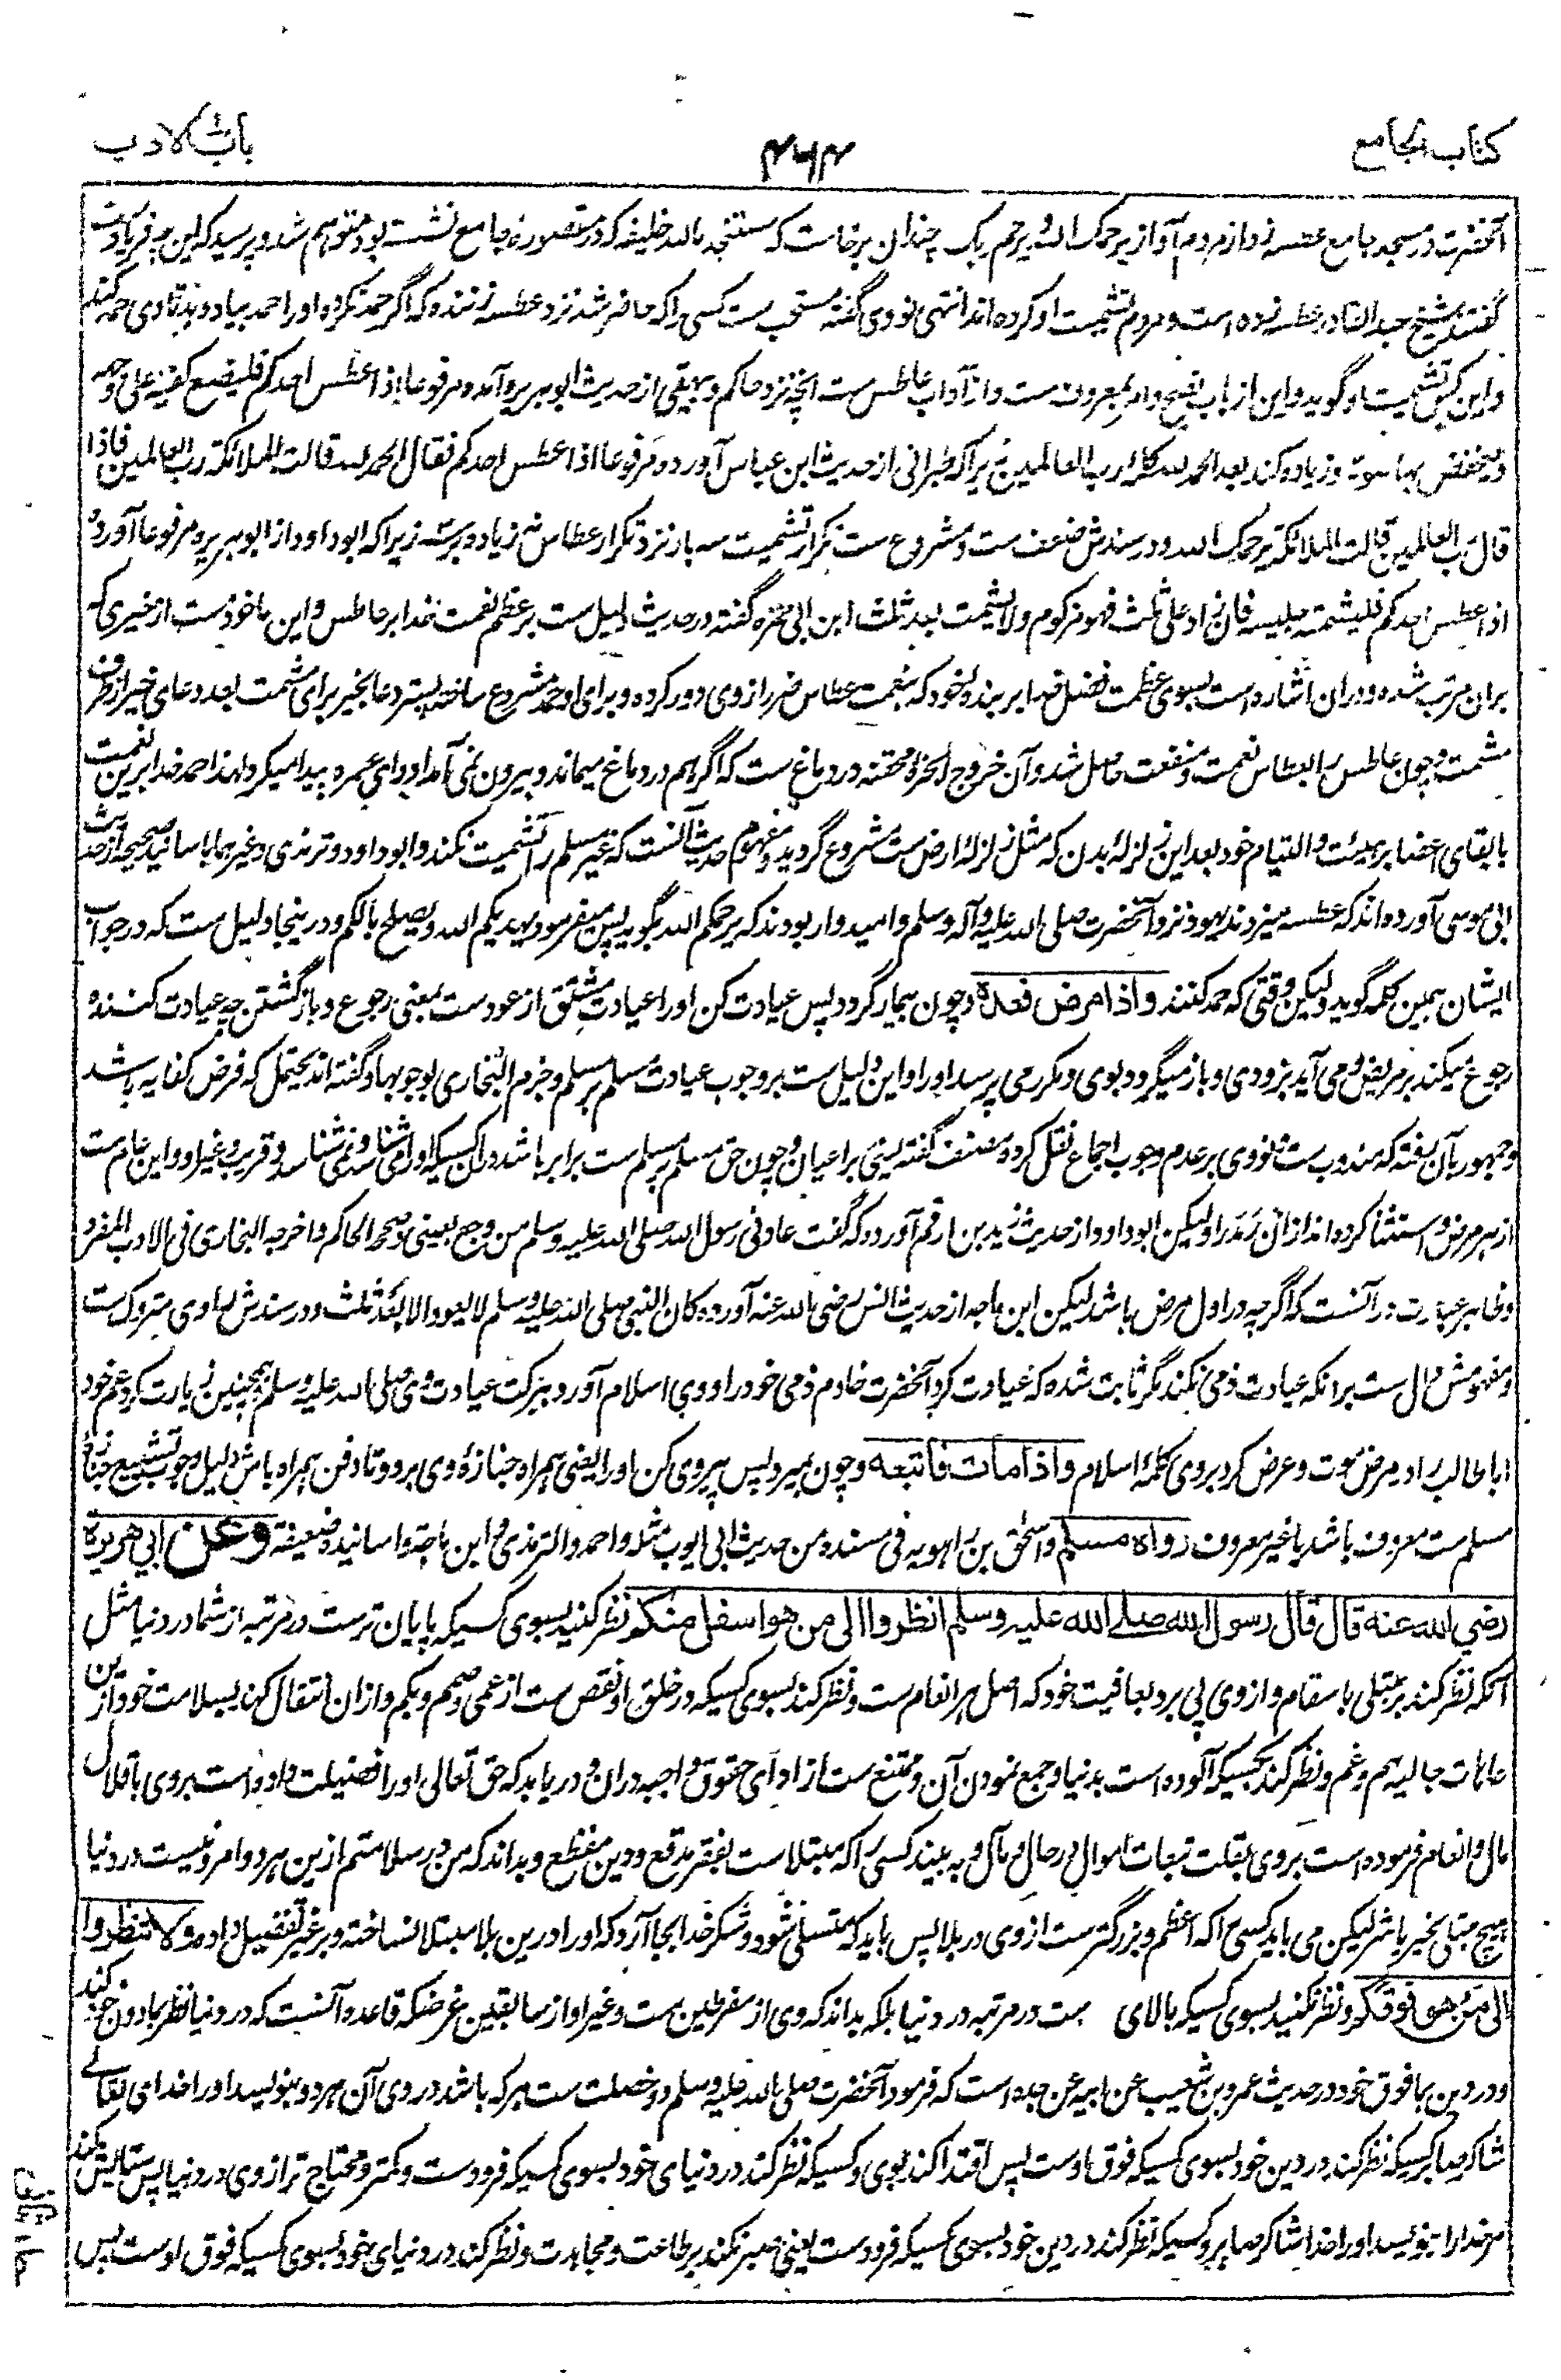 کتاب الجامع
۴۶۴
باب الادب
آنحضرت در مسجد جامع عطسه زد از مردم آواز یرحمک الله و یرحم ربک چندان برخاست که مستنجد بالله خلیفه که در مقصوره جامع نشسته بود متوهم شد و پرسید که این چه فریادست
گفتند شیخ عبد القادر عطسه زده است و مردم تشمیت او کرده اند انتهی نووی گفته مستحب ست کسی را که حاضر شد نزد عطسه زننده که اگر حمد نکرد او را حمد بیاد دهد تا وی حمد کند
و این کس تشمیت او گوید و این از باب نصح و امر بمعروف ست و از آداب عاطس ست انچه نزد حاکم و بیهقی از حدیث ابو هریره آمده مرفوعا اذا عطس احدکم فلیضع کفیه علی وجهه
و یخفض بها صوته و زیاده کند بعد الحمد لله کلمه رب العالمین زیرا که طبرانی از حدیث ابن عباس آورده مرفوعا اذا عطس احدکم فقال الحمد لله قالت الملائکة رب العالمین فاذا
قال رب العالمین قالت الملائکة یرحمک الله و در سندش ضعف ست و مشروع ست تکرار تشمیت سه بار نزد تکرار عطاس نه زیاده بر سه زیرا که ابو داود از ابو هریره مرفوعا آورده
اذا عطس احدکم فلیشمته جلیسه فان زاد علی ثلث فهو مزکوم و لا یشمت بعد ثلث ابن ابی جمره گفته در حدیث دلیل ست بر عظم نعمت خدا بر عاطس و این ماخوذ ست از خیری که
بران مرتب شده و دران اشاره است بسوی عظمت فضل خدا بر بنده خود که بنعمت عطاس ضرر از وی دور کرده و برای او حمد مشروع ساخته پستر دعا بخیر برای مشمت بعد دعای خیر از طرف
مشمت و چون عاطس را بعطاس نعمت و منفعت حاصل شد و آن خروج ابخره محتقنه در دماغ ست که اگر هم در دماغ میماند و بیرون نمی آمد ادوای عسره پیدا میکرد لهذا حمد خدا برین نعمت
با بقای اعضا بر هیئت و التیام خود بعد این زلزله بدن که مثل زلزله ارض ست مشروع گردید و مفهوم حدیث آنست که غیر مسلم را تشمیت نکند و ابو داود و ترمذی و غیرهما باسانید صحیحه از حدیث
ابی موسی آورده اند که عطسه میزدند یهود نزد آنحضرت صلی الله علیه و آله وسلم و امیدوار بودند که یرحمکم الله بگوید پس میفرمود یهدیکم الله و یصلح بالکم و درینجا دلیل ست که در جواب
ایشان همین کلمه گوید و لیکن وقتی که حمد کنند واذا مرض فعده و چون بیمار گردد پس عیادت کن او را عیادت مشتق از عود ست بمعنی رجوع و باز گشتن چه عیادت کننده
رجوع میکند بر مریض و می آید بزودی و باز میگردد بوی و مکرر می پرسد او را و این دلیل ست بر وجوب عیادت مسلم بر مسلم و جزم البخاری بوجوبها و گفته اند یحتمل که فرض کفایه باشد
و جمهور بآن رفته که مندوب ست و نووی بر عدم وجوب اجماع نقل کرده مصنف گفته یعنی بر اعیان و چون حق مسلم بر مسلم ست برابر باشد دران کسیکه او را می شناسد و نمی شناسد و قریب و غیر او و این عام ست
از هر مرض و استثنا کرده اند ازان رمد را و لیکن ابو داود از حدیث زید بن ارقم آورده که گفت عادنی رسول الله صلی الله علیه وسلم من وجع بعینی و صححه الحاکم و اخرجه البخاری فی الادب المفرد
و ظاهر عبارت در آنست که اگرچه در اول مرض باشد لیکن ابن ماجه از حدیث انس رضی الله عنه آورده کان النبی صلی الله علیه وسلم لا یعود الا بعد ثلث و در سندش راوی متروک ست
و مفهومش دال ست برانکه عیادت ذمی نکند مگر ثابت شده که عیادت کرد آنحضرت خادم ذمی خود را و وی اسلام آورد ببرکت عیادت وی صلی الله علیه وسلم و همچنین زیارت کرد عم خود
ابا طالب را در مرض موت و عرض کرد بروی کلمه اسلام واذا مات فاتبعه و چون بمیرد پس پیروی کن او را یعنی همراه جنازه وی برو و تا دفن همراه باش دلیل وجوب تشییع جنازه
مسلم ست معروف باشد یا غیر معروف رواه مسلم و اسحق بن راهویه فی مسنده من حدیث ابی ایوب مثله و احمد و الترمذی و ابن ماجة و اسانیده ضعیفة وعن ابی هریرة
رضی الله عنه قال قال رسول الله صلی الله علیه وسلم انظروا الی من هو اسفل منکم نظر کنید بسوی کسیکه پایان ترست در مرتبه از شما در دنیا مثل
آنکه نظر کند بر مبتلی باسقام و از وی پی برد بعافیت خود که اصل هر انعام ست و نظر کند بسوی کسیکه در خلق او نقص ست از عمی و صمم و بکم و ازان انتقال کند بسلامت خود ازین
عاهات جالبه هم و غم و نظر کند بکسیکه آلوده است بدنیا و جمع نمودن آن و ممتنع ست از ادای حقوق واجبه دران و دریابد که حق تعالی او را فضیلت داده است بر وی باقلال
مال و انعام فرموده است بروی بقلت تبعات اموال در حال و مآل و به بیند کسی را که مبتلا ست بفقر مدقع و دین مفظع و بداند که من در سلامتم ازین هر دو امر و نیست در دنیا
هیچ مبتلی بخیر یا شر لیکن می یابد کسی را که اعظم و بزرگتر ست از وی در بلا پس باید که متسلی شود و شکر خدا بجا آرد که او را درین بلا مبتلا نساخته و بر غیر تفضیل داده ولا تنظروا
الی من هو فوقکم و نظر نکنید بسوی کسیکه بالای ست در مرتبه در دنیا بلکه بداند که وی از مفرطین ست و غیر او از سابقین غرضکه قاعده آنست که در دنیا نظر بمادون خود کند
و در دین بما فوق خود در حدیث عمرو بن شعیب عن ابیه عن جده است که فرمود آنحضرت صلی الله علیه وسلم دو خصلت ست هر که باشد در وی آن هر دو بنویسد او را خدای تعالی
شاکر صابر کسیکه نظر کند در دین خود بسوی کسیکه فوق اوست پس اقتدا کند بوی و کسیکه نظر کند در دنیای خود بسوی کسیکه فرودست و کمتر و محتاج تر از وی در دنیا پس ستایش کند
مر خدا را بنویسد او را خدا شاکر صابر و کسیکه نظر کند در دین خود بسوی کسیکه فرودست یعنی صبر نکند بر طاعت و مجاهدت و نظر کند در دنیای خود بسوی کسیکه فوق اوست پس